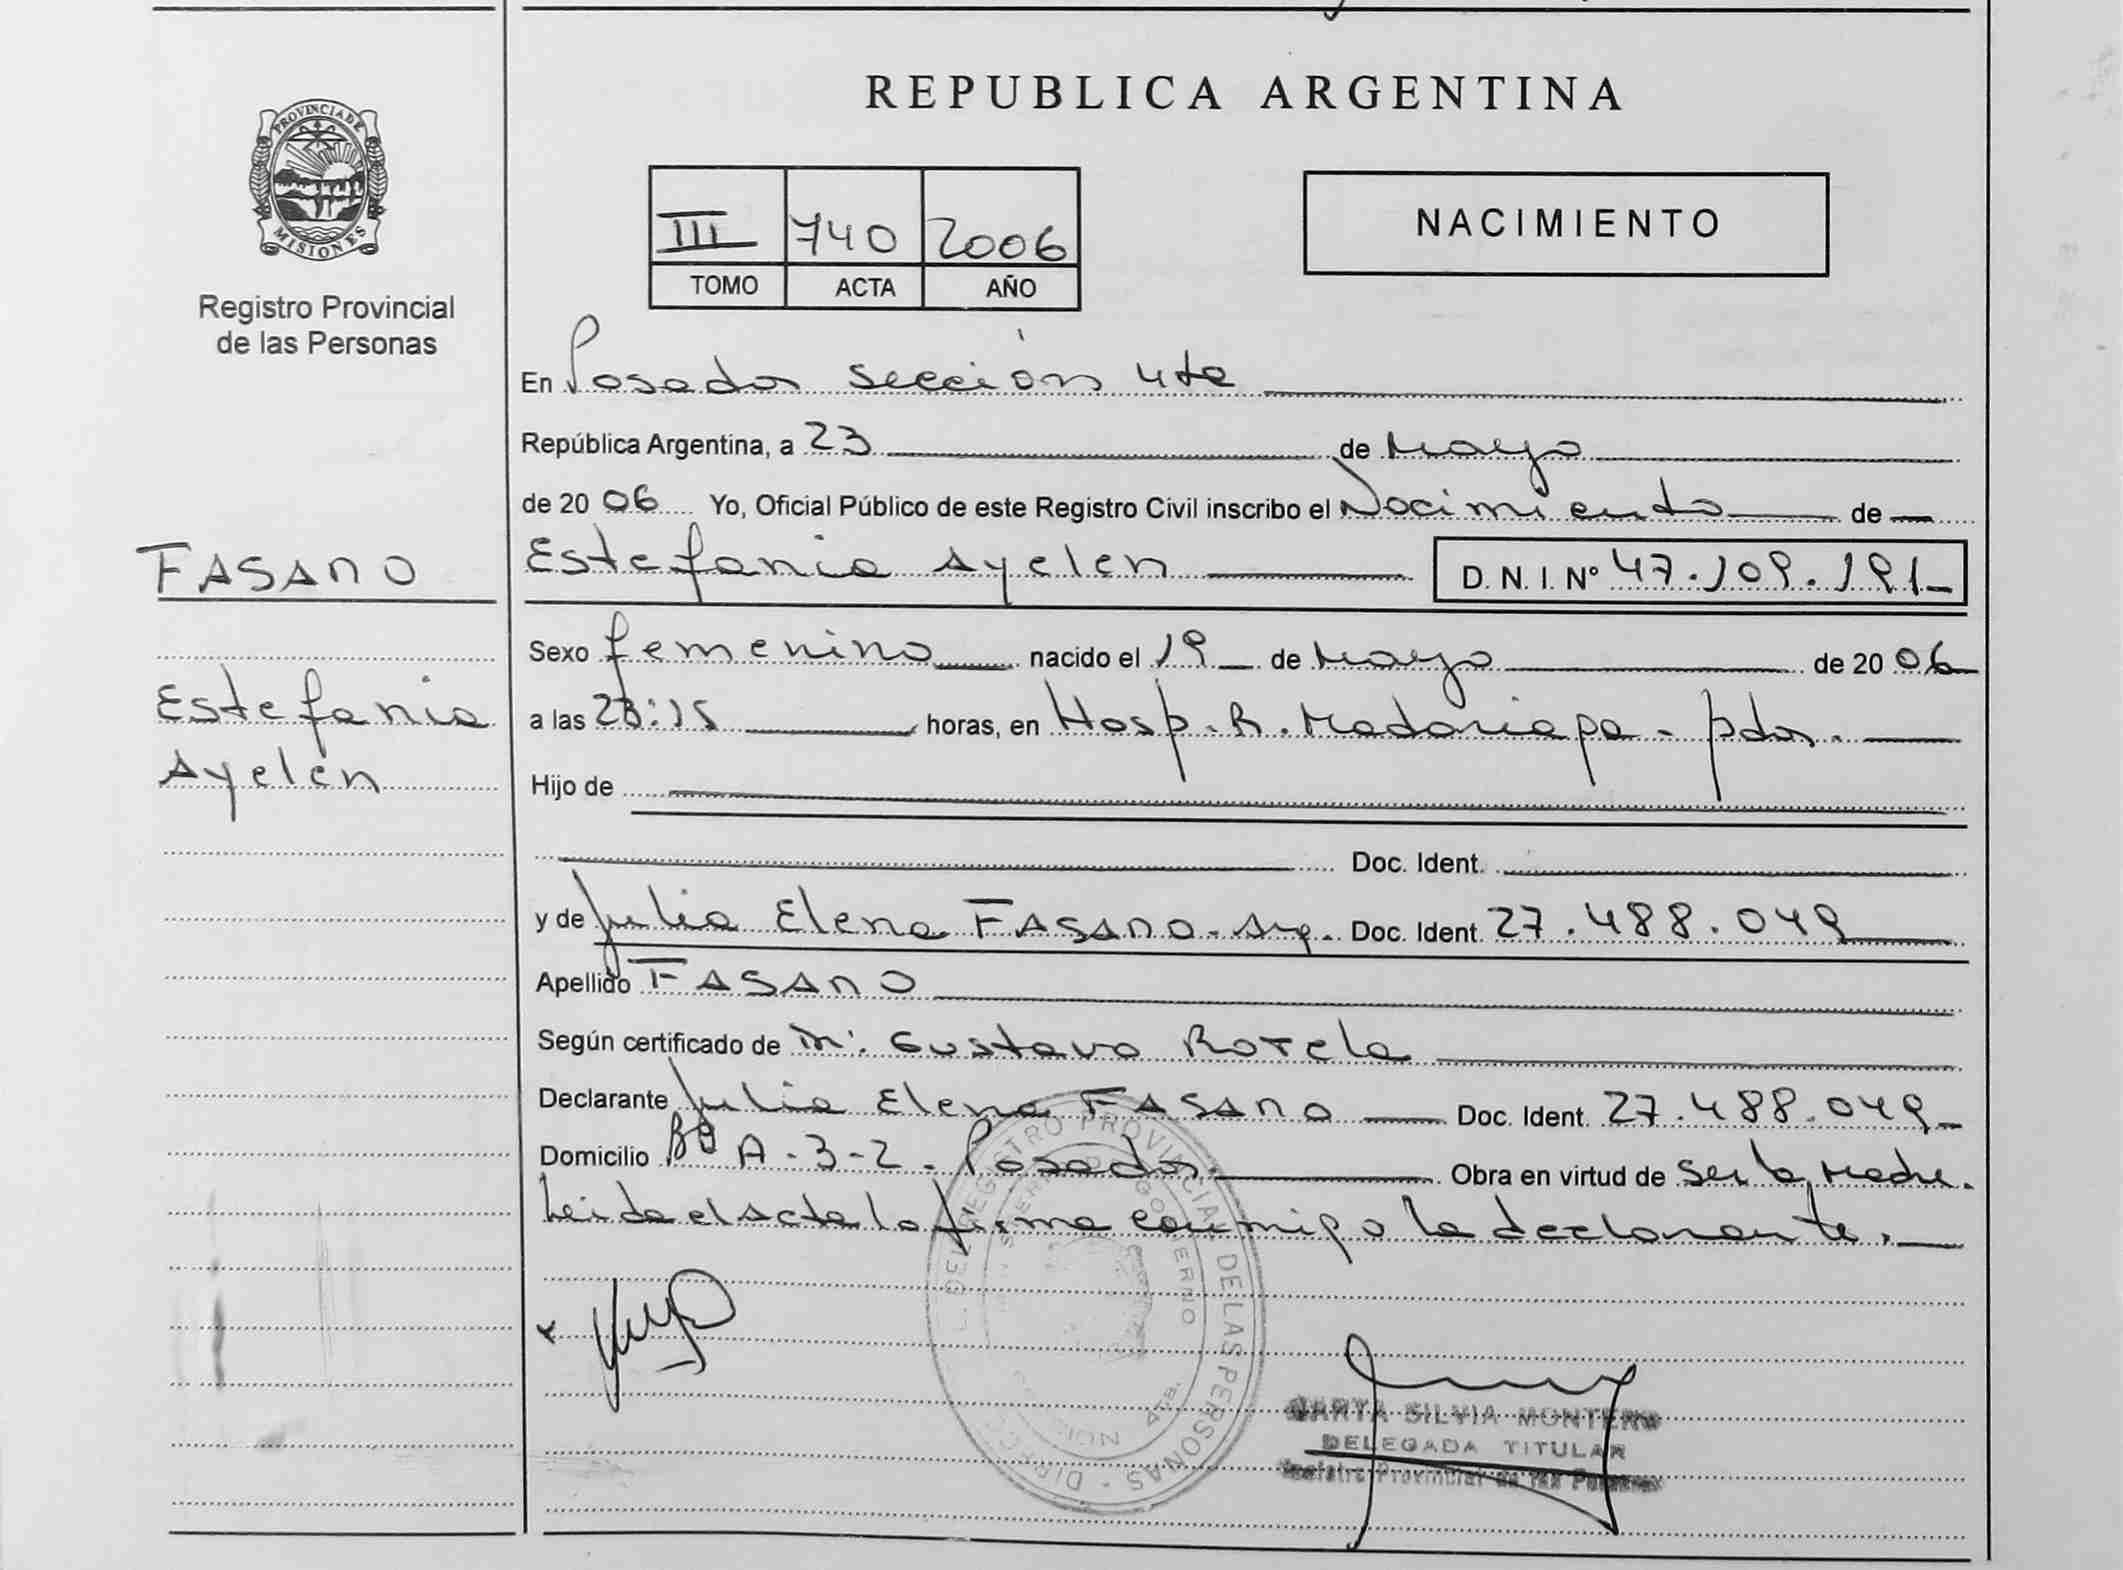 REPUBLICA ARGENTINA
PROVINCIA DE MISIONES
Registro Provincial
de las Personas
III 740 2006
TOMO ACTA AÑO
NACIMIENTO
En Posadas sección 4ta
República Argentina, a 23 de Mayo
de 20 06 Yo, Oficial Público de este Registro Civil inscribo el Nacimiento de
FASANO
Estefania Ayelen
Estefania Ayelen D. N. I. Nº 47.109.191
Sexo femenino nacido el 19 de Mayo de 20 06
a las 23:15 horas, en Hosp. R. Madariaga - pdas.
Hijo de
Doc. Ident.
y de Julia Elena FASANO - Arg. Doc. Ident. 27.488.049
Apellido FASANO
Según certificado de Gustavo Rotela
Declarante Julia Elena FASANO Doc. Ident. 27.488.049
Domicilio Bº A-3-2. Posadas Obra en virtud de ser la Madre.
Leida el Acta la firma conmigo la declarante.
REGISTRO PROVINCIAL DE LAS PERSONAS
MARTA SILVIA MONTERO
DELEGADA TITULAR
Registro Provincial de las Personas